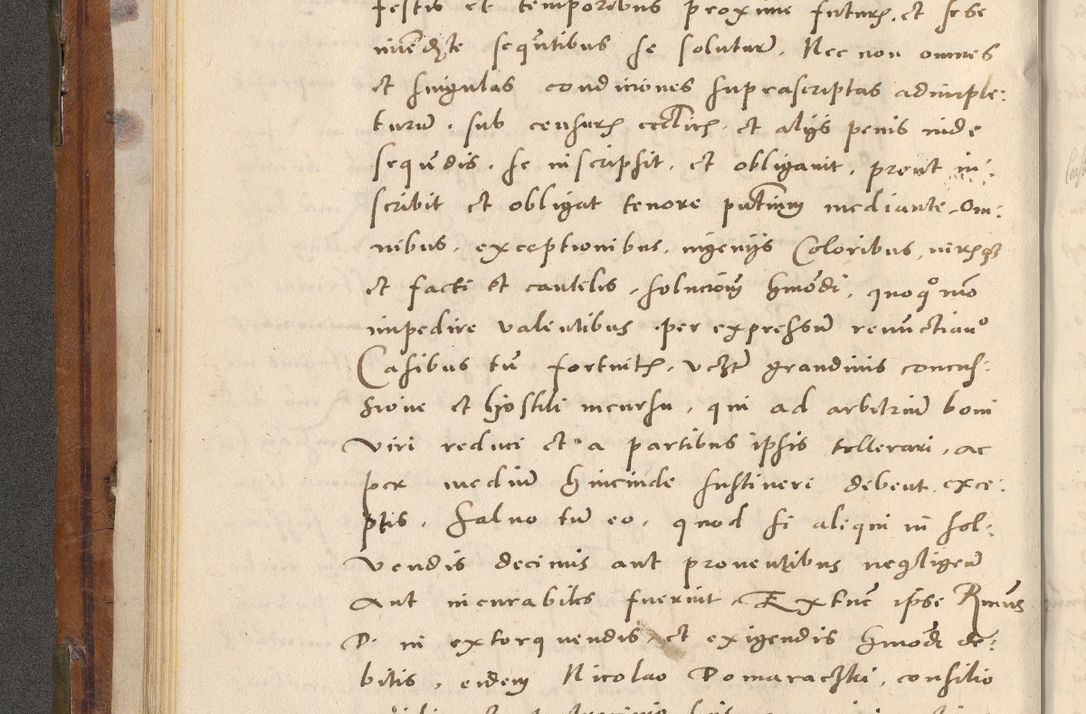 festis et temporibus proxime futur. et sese
sequtibus se soluturu. Nec non omnes
et singulas condiciones suprascriptas adimple:
turu. sub censur ecclicis. et alijs penis inde
sequdis. se inscripsit. et obligauit. prout in:
scribit et obligat tenore putium mediante. Om:
nibus. exceptionibus. ingenijs Coloribus,
et facti et cautelis. solucioni hmodi. quoquomo
impedire valentibus per expressu
Casibus tu fortuitis. grandinis concus:
sione et hostili incursu. qui ad arbitriu boni
viri reduci et a partibus ipsis tollerari. ac
per mediu hincinde sustineri debent. exce:
ptis. Saluo tu eo. quod si aliqui in sol:
vendis decimis aut prouentibus
Aut incurabiles fuerint. Extunc ipse Rmus
D. in extorquendis et exigendis hmodi de:
bitis. eidem Nicolao Domaraczki, consilio